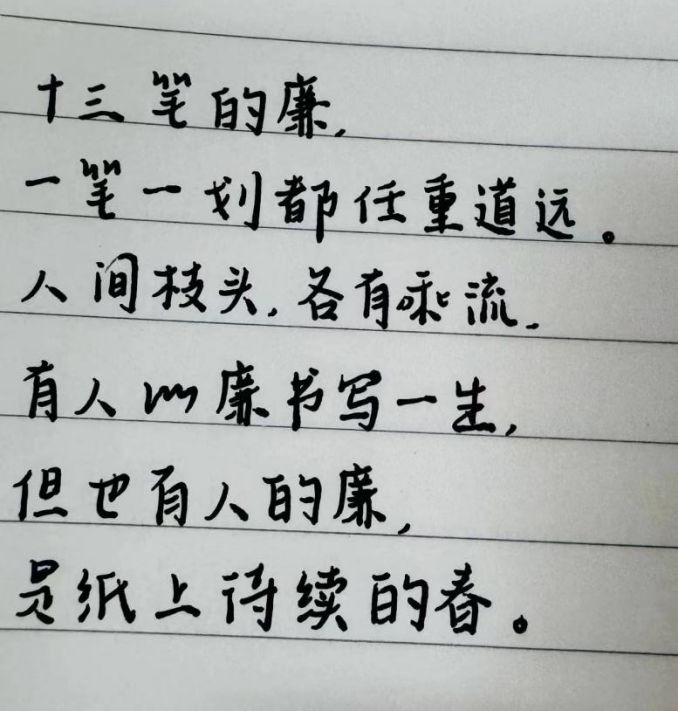 十三笔的廉,
一笔一划都任重道远。
人间枝头,各有乘流,
有人以廉书写一生,
但也有人的廉,
是纸上待续的春。